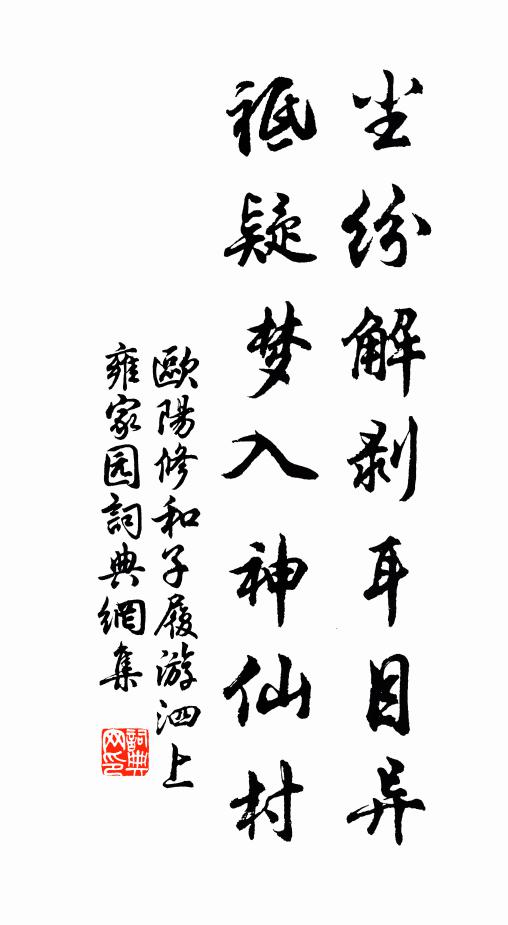 尘纷解剥耳目异
祗疑梦入神仙村
歐陽修和子履游泗上
雍家园詞典網集
詞典网印